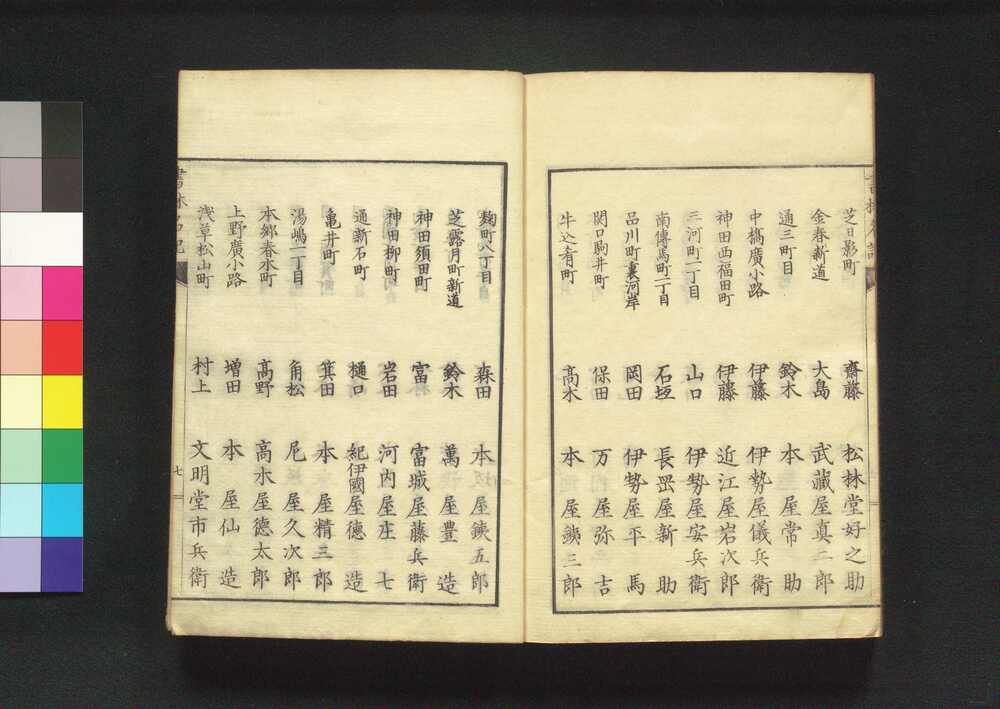 芝日影町 齋藤 松林堂好之助
金春新道 大島 武藏屋真二郎
通三町目 鈴木 本屋常助
中橋廣小路 伊藤 伊勢屋儀兵衛
神田西福田町 伊藤 近江屋岩次郎
三河町一丁目 山口 伊勢屋安兵衛
南傳馬町二丁目 石垣 長罡屋新助
品川町裏河岸 岡田 伊勢屋平馬
関口駒井町 保田 万屋弥吉
牛込肴町 髙木 本屋鐵三郎
麹町八丁目 森田 本屋鐵五郎
芝露月町新道 鈴木 萬屋豊造
神田須田町 富 富城屋藤兵衛
神田柳町 岩田 河内屋庄七
通新石町 樋口 紀伊國屋德造
亀井町 箕田 本屋精三郎
湯嶋一丁目 角松 尼屋久次郎
本郷春木町 髙野 高水屋德太郎
上野廣小路 増田 本屋仙造
浅草松山町 村上 文明堂市兵衛
七